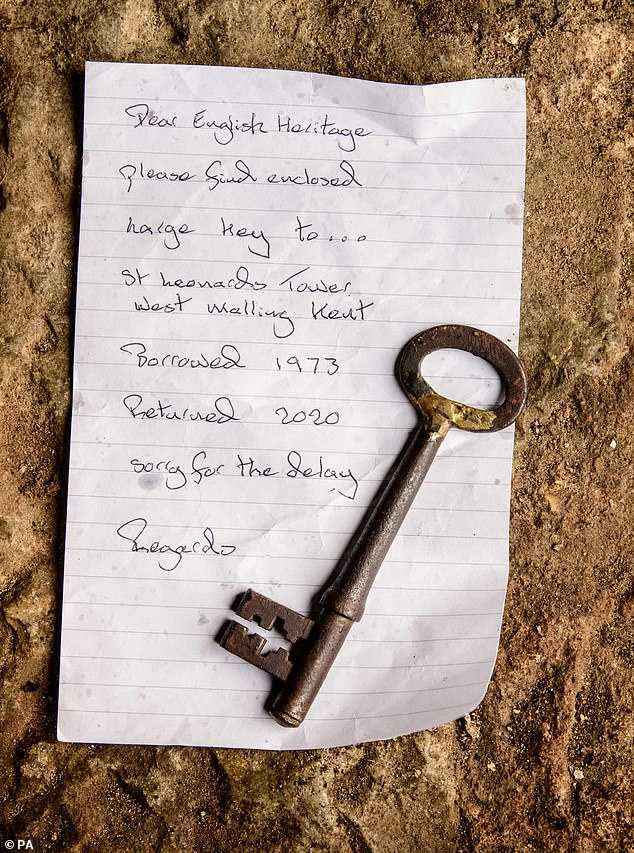 Dear English Heritage
please find enclosed
large key to...
St Leonards Tower
West Malling Kent
Borrowed 1973
Returned 2020
sorry for the delay
Regards
© PA